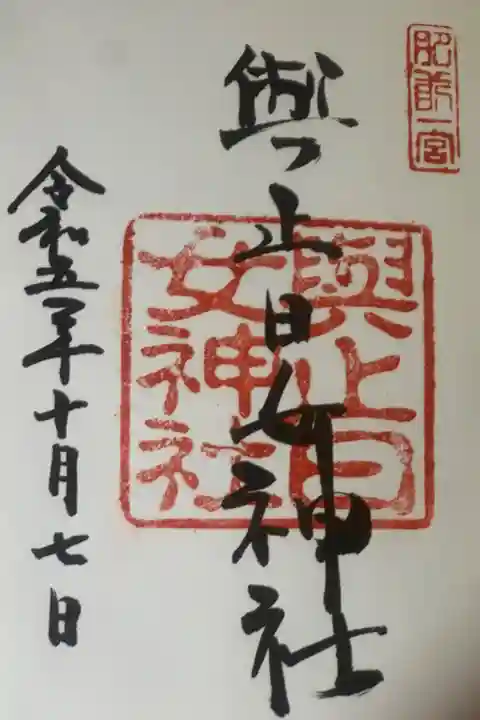 肥前一宮
與止日女神社
與止日
女神社
令和五年十月七日